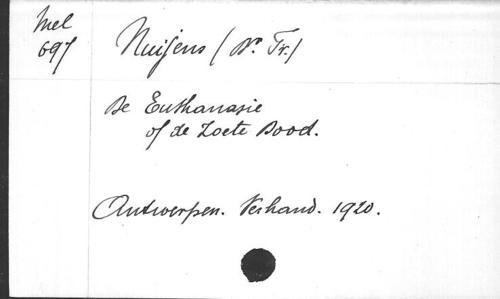 Mel
697
Nuijens (Dr. Fr.)
De Euthanasie
of de Zoete Dood.
Antwerpen. Verhand. 1920.